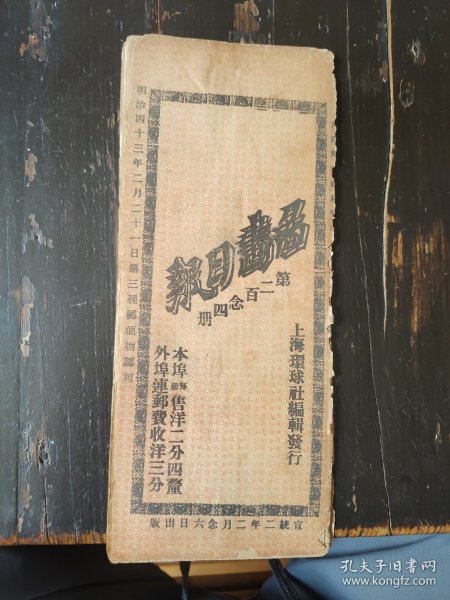 圖畫日報
第二百念四册
上海環球社編輯發行
本埠每册售洋二分四釐
外埠連郵費收洋三分
宣統二年二月念六日出版
明治四十三年二月二十一日第三種郵便物認可
孔夫子旧书网
www.kongfz.com